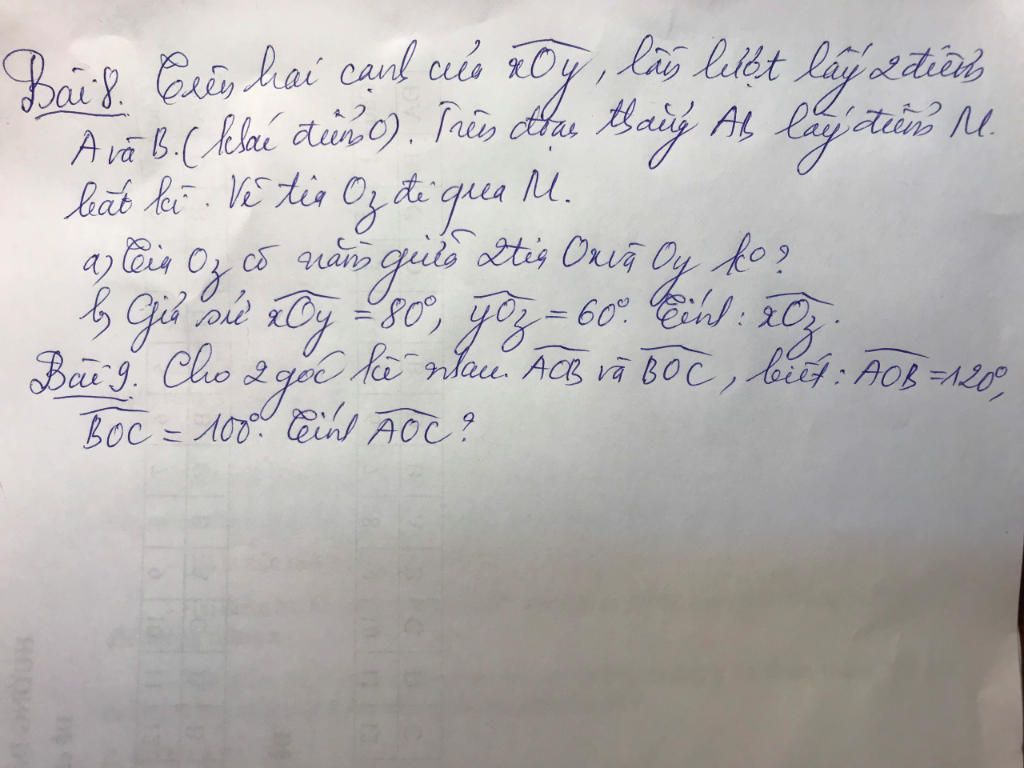 Bài 8. Trên hai cạnh của xOy, lần lượt lấy 2 điểm
A và B. (khác điểm O). Trên đoạn thẳng AB lấy điểm M.
bất kì. Vẽ tia Oz đi qua M.
a) Tia Oz có nằm giữa 2 tia Ox và Oy ko?
b) Giả sử xOy = 80°, yOz = 60°. Tính: xOz.
Bài 9. Cho 2 góc kề nhau AOB và BOC, biết: AOB = 120°,
BOC = 100°. Tính AOC?